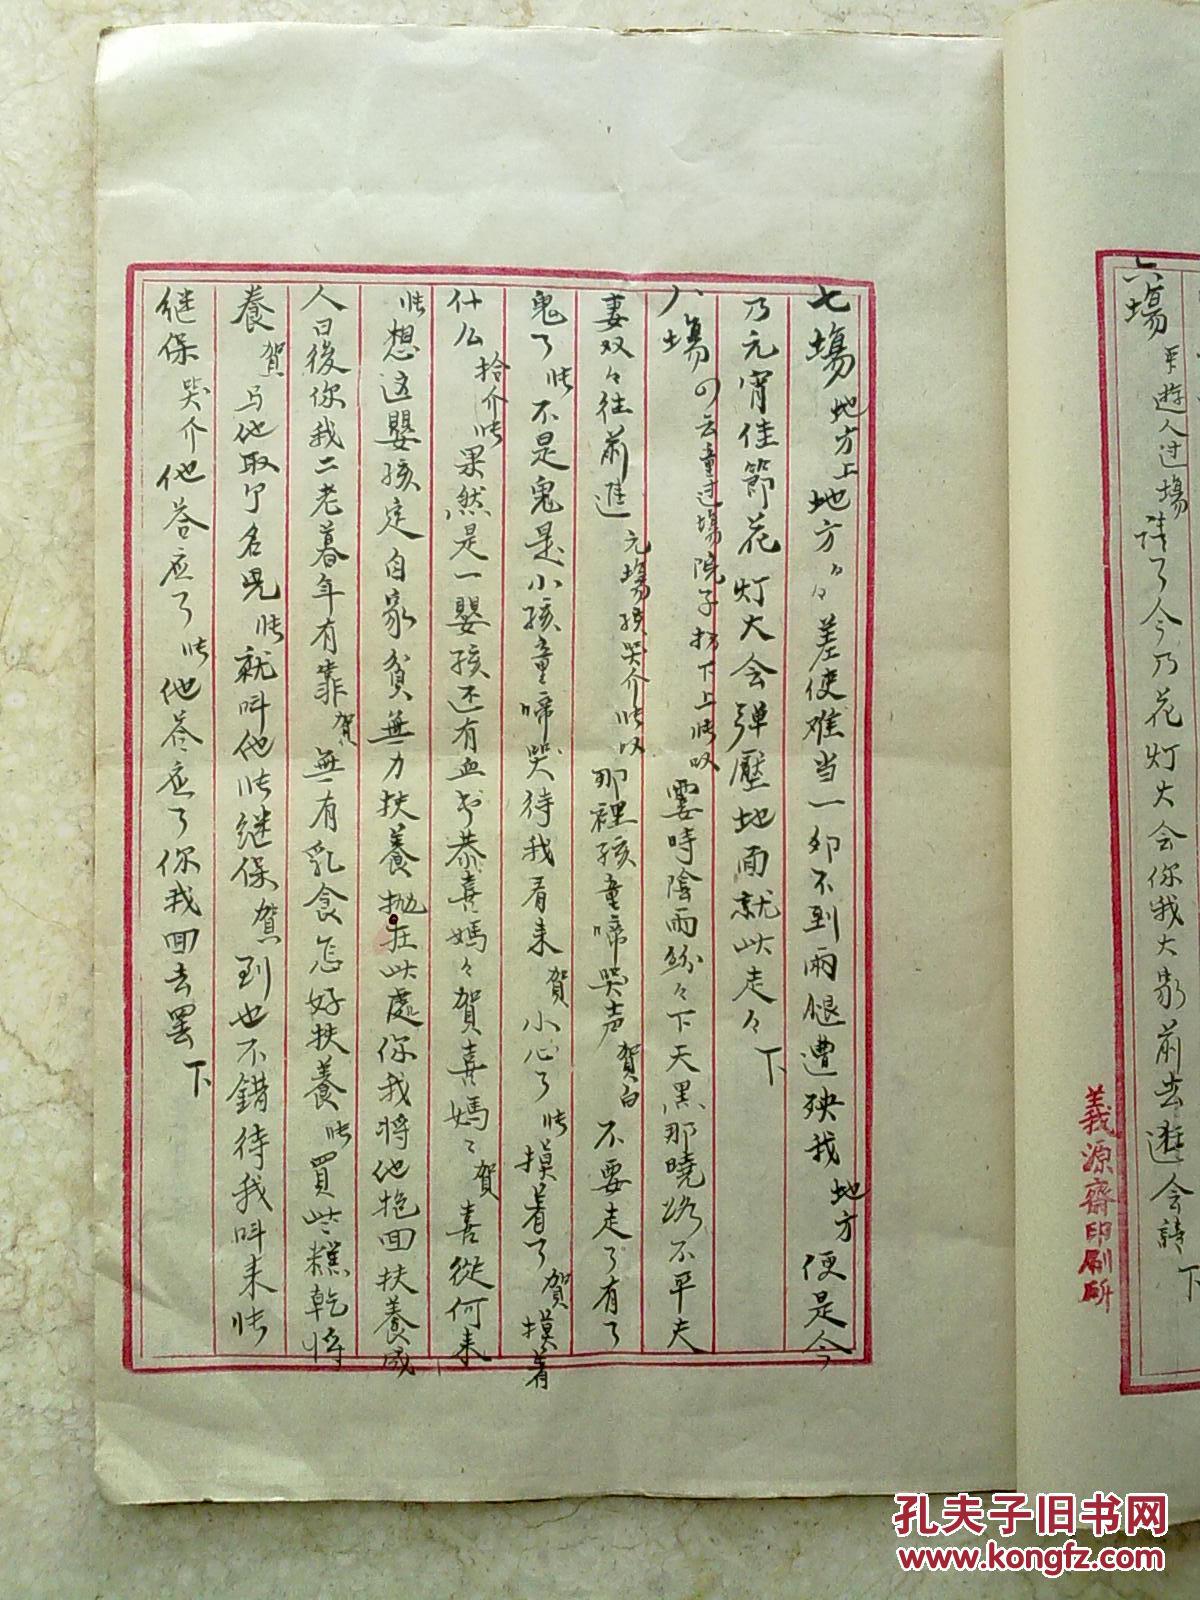 六場 平遊人过場 請了今乃花灯大会你我大家前去逛会請 下
義源齋印刷所
七場 地方上 地方々々差使难当一卯不到兩腿遭殃我 地方 便是今
乃元宵佳節花灯大会弹壓地面就此走々 下
八場 四云童过場院子拐下上 张叹 霎時陰雨紛々下天黑那曉路不平夫
妻双々往前進 元場孩哭介张叹 那裡孩童啼哭声 賀白 不要走了有了
鬼了 张 不是鬼是小孩童啼哭待我看来 賀 小心了 张 摸着了 賀 摸着
什么 拾介张 果然是一嬰孩还有血书恭喜媽々賀喜媽々 賀 喜從何来
张 想这嬰孩定自家貧無力扶養抛在此處你我将他抱回扶養成
人日後你我二老暮年有靠 賀 無有乳食怎好扶養 张 買些糕乾将
養 賀 与他取个名児 张 就叫他张継保 賀 到也不錯待我叫来 张
継保 哭介 他答应了 张 他答应了你我回去罢 下
孔夫子旧书网
www.kongfz.com